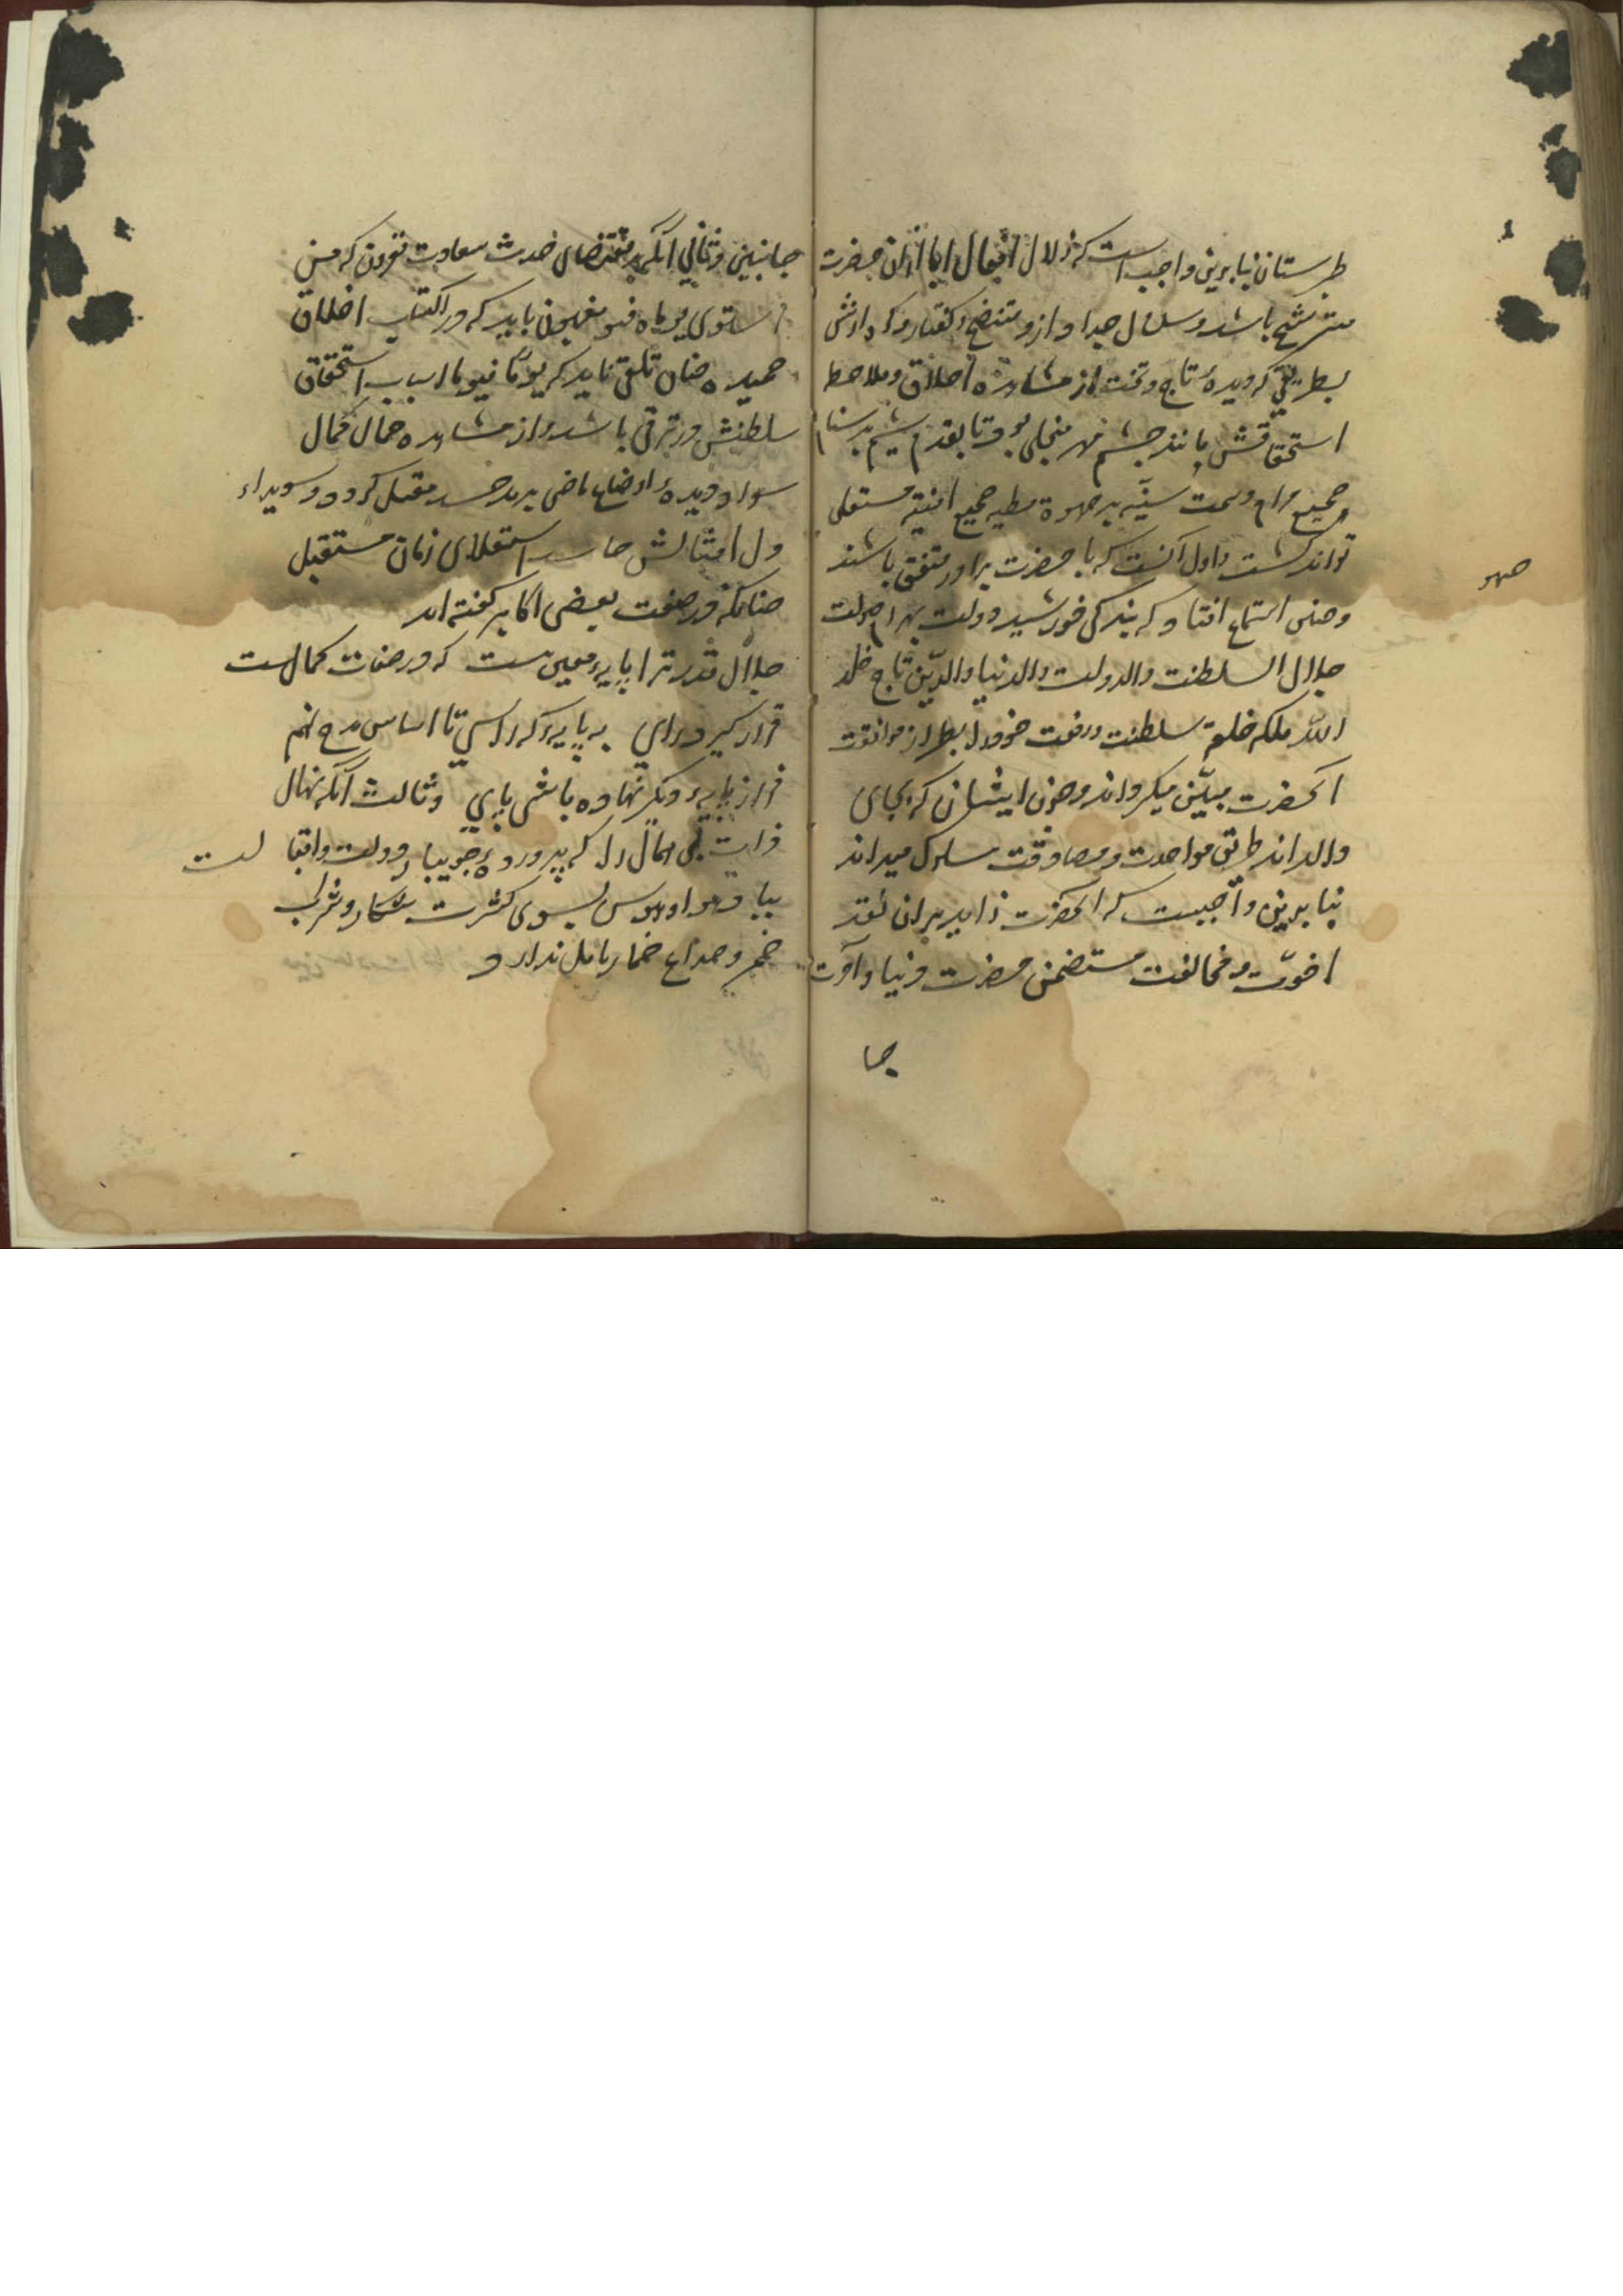 طبرستان بنابرین واجب است که زلال افعال ابا ازان حضرت
مترشح باشد و سلسال جد او ازو متنضح و گفتار و کردارش
بطریقی که دیدهٔ تاج و تخت از مشاهدهٔ اخلاق و ملاحظ
استحقاقش مانند چشم مهر منجلی بود تا بقدم
جمیع مرام و سمت سنیه بر صهوة مطیه جمیع امنیه مستعلی
تواند گشت و اول آنست که با حضرت برادر متفق باشند
صهو
و چنین استماع افتاد که بندگی خورشید دولت بهرام صولت
جلال السلطنت والدولت والدنیا والدین تاج خلد
الله ملکه خلعت سلطنت و رفعت خود را بطراز موافقت
آنحضرت مبیّن میگرداند و چون ایشان که بجای
والداند طریق مواحدت و مصادقت سلوک میداند
بنابرین واجبست که آنحضرت زاید بران بقدر
اخوّت و مخالفت مستضمن مضرت دنیا و آخرت
جا
جانبین و ثانی آنکه بر مقتضای حدیث سعادت مقرون که من
استوی یوماه فهو مغبون باید که در اکتساب اخلاق
حمیده چنان تلقی نماید که یوما فیوما اسباب استحقاق
سلطنتش در ترقی باشد و از مشاهده جمال کمال
سواد دیدهٔ اوضاع ماضی برمد حسد مقبل گردد و سویداء
دل امثالش حاسد استعلای زمان مستقبل
چنانکه در صفت بعضی اکابر گفته اند
جلال قدر ترا پایهٔ معین نیست که در صفات کمالست
قرار گیرد رای به پایهٔ که رسی تا اساس مدح نهم
فراز پایهٔ دیگر نهاده باشی پای و ثالث آنکه نهال
ذات بی همال را که پروردهٔ جویبار دولت و اقبا لست
بباد هوا و هوس بسوی کثرت شکار و شراب
خمر و صداع خمار مایل ندارد